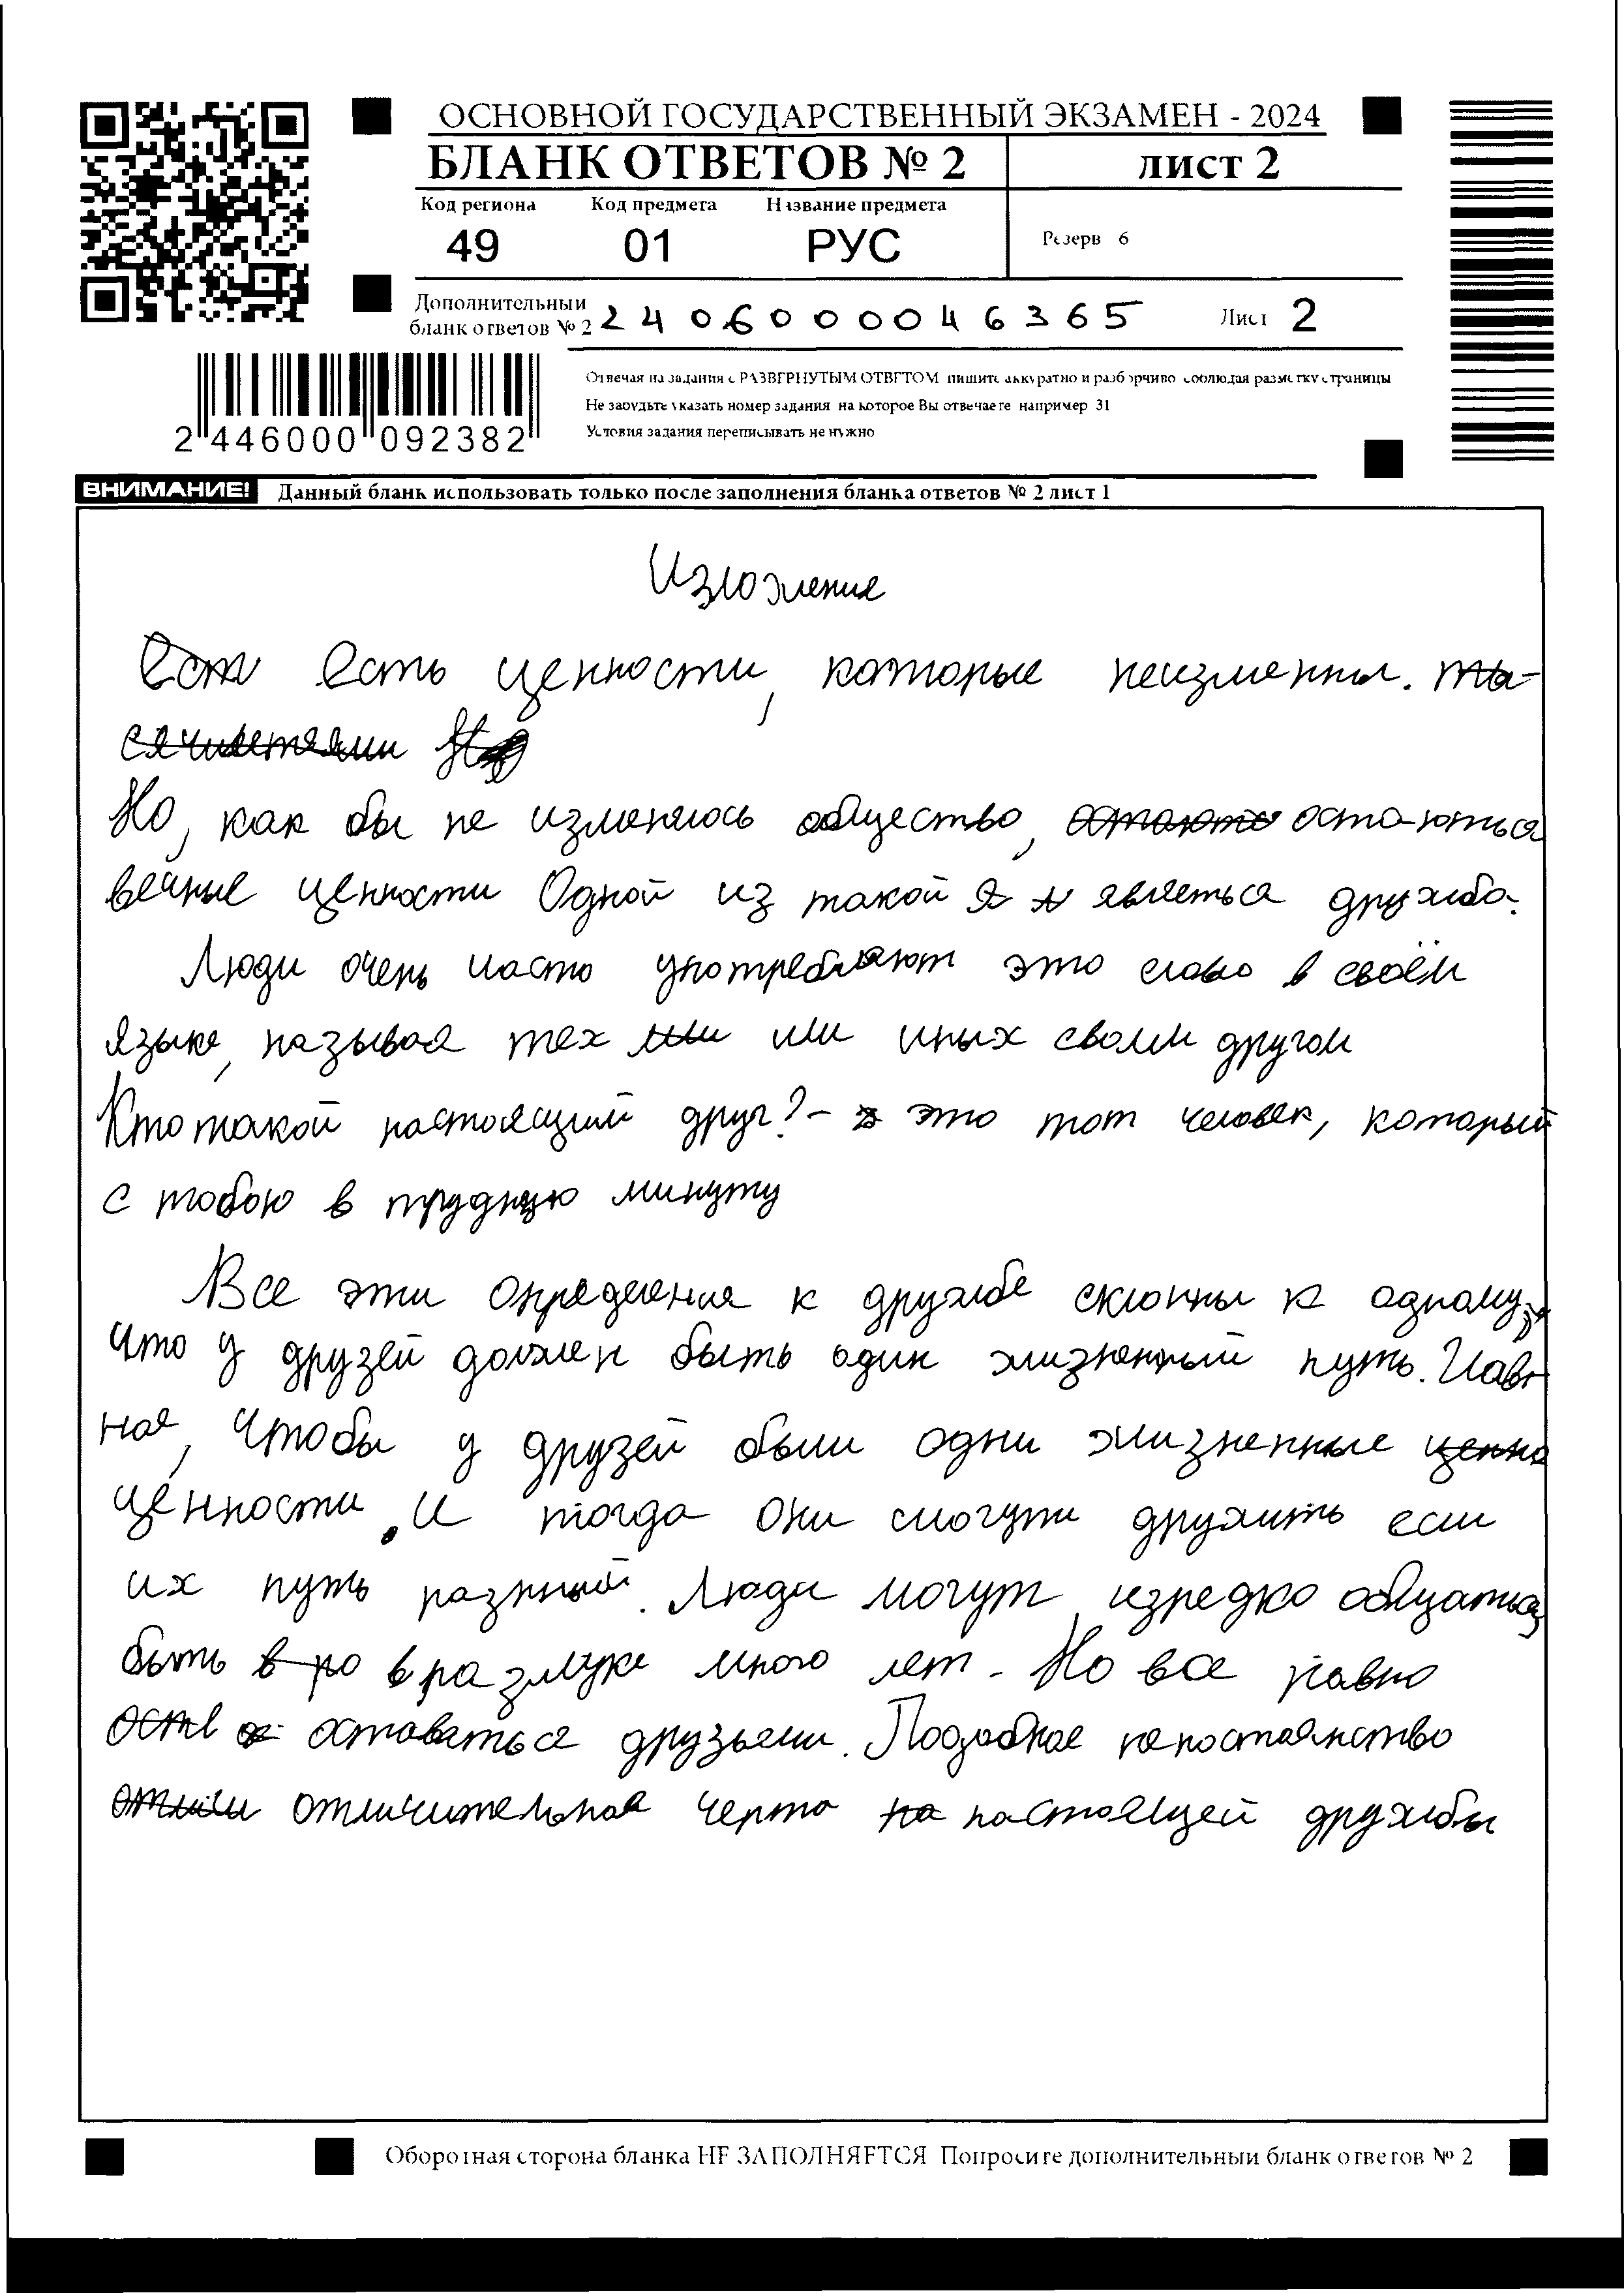 ОСНОВНОЙ ГОСУДАРСТВЕННЫЙ ЭКЗАМЕН - 2024
БЛАНК ОТВЕТОВ № 2 ЛИСТ 2
Код региона Код предмета Название предмета
49 01 РУС Резерв 6
Дополнительный
бланк ответов № 2 2406000046365 Лист 2
Отвечая на задания с РАЗВЕРНУТЫМ ОТВЕТОМ пишите аккуратно и разборчиво соблюдая разметку страницы
Не забудьте указать номер задания на которое Вы отвечаете например 31
Условия задания переписывать не нужно
2 446000 092382
ВНИМАНИЕ! Данный бланк использовать только после заполнения бланка ответов № 2 лист 1
Изложение
Есть ценности, которые неизменны.
Но, как бы не изменялось общество, остаються
вечные ценности Одной из такой являеться дружба.
Люди очень часто употребляют это слово в своём
языке, называя тех или иных своим другом
Кто такой настоящий друг? - это тот человек, который
с тобою в трудную минуту
Все эти определения к дружбе склонны к одному,
что у друзей должен быть один жизненный путь. Глав-
ное, чтобы у друзей были одни жизненные
ценности. И тогда они смогут дружить если
их путь разный. Люди могут, изредко общаться,
быть в разлуке много лет. Но все равно
оставаться друзьями. Подобное непостоянство
отличительная черта настоящей дружбы
Оборотная сторона бланка НЕ ЗАПОЛНЯЕТСЯ Попросите дополнительный бланк ответов № 2